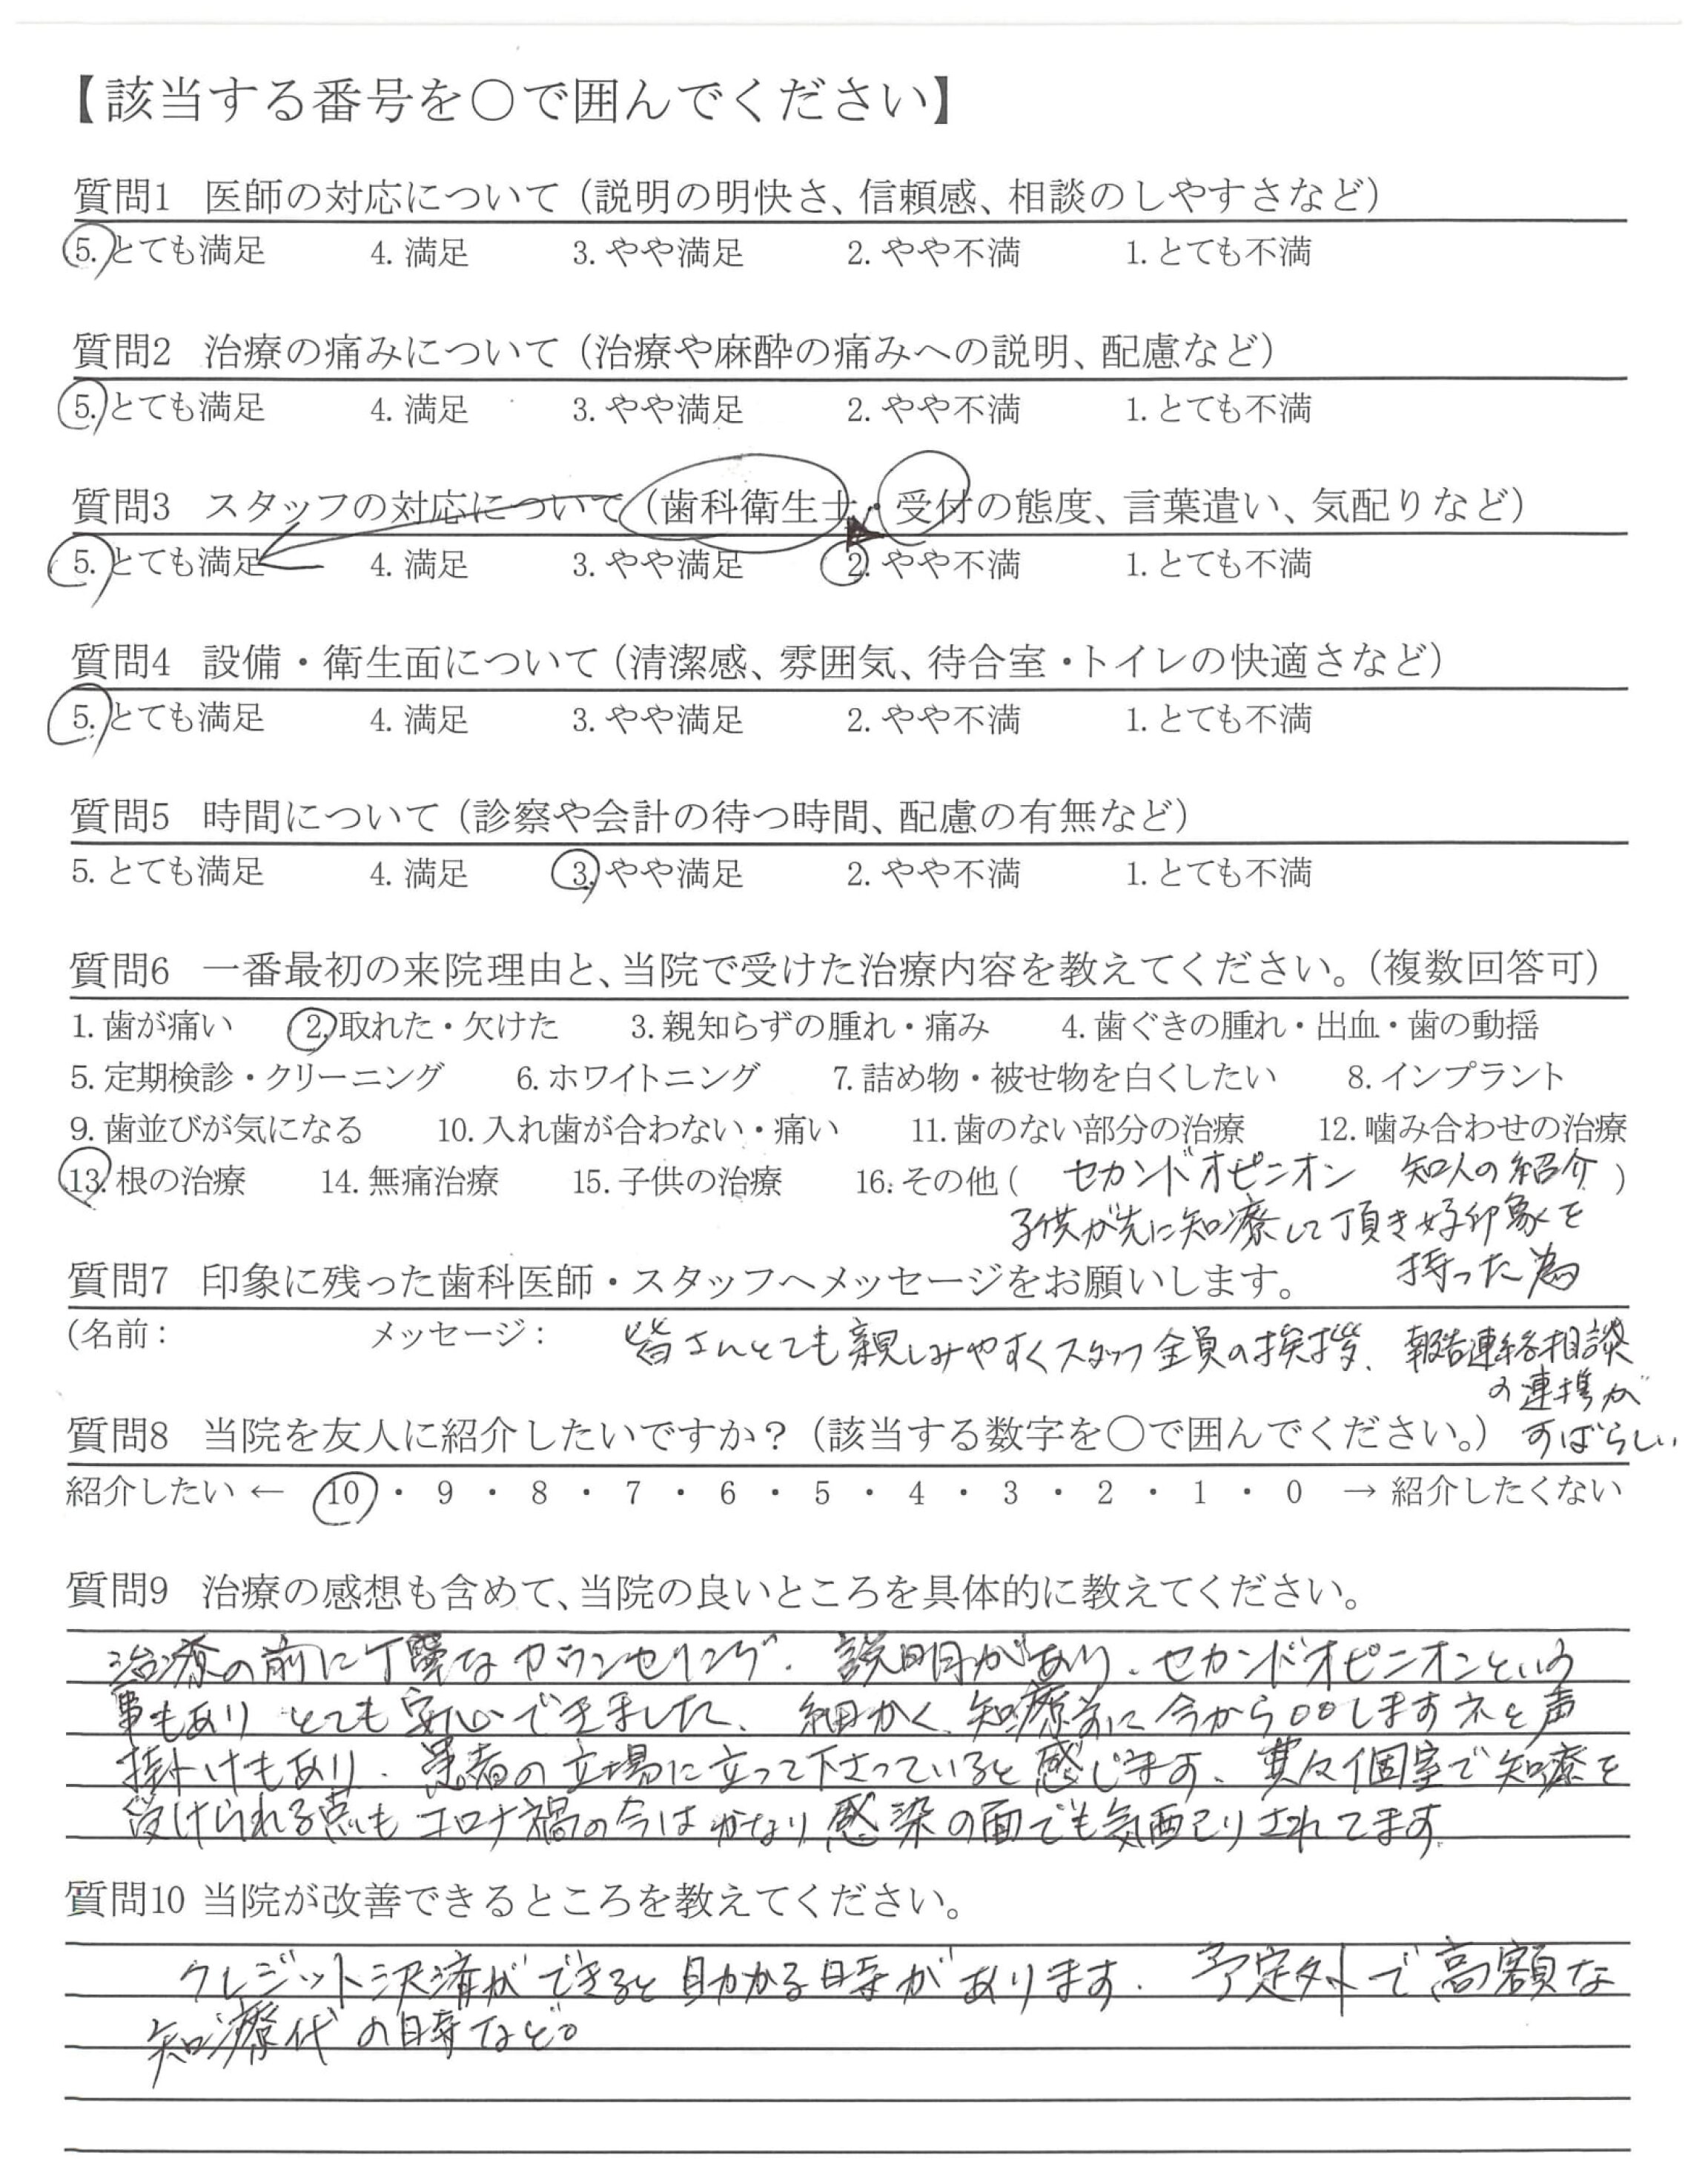 【該当する番号を○で囲んでください】
質問1 医師の対応について（説明の明快さ、信頼感、相談のしやすさなど）
5. とても満足 4. 満足 3. やや満足 2. やや不満 1. とても不満
質問2 治療の痛みについて（治療や麻酔の痛みへの説明、配慮など）
5. とても満足 4. 満足 3. やや満足 2. やや不満 1. とても不満
質問3 スタッフの対応について（歯科衛生士・受付の態度、言葉遣い、気配りなど）
5. とても満足 4. 満足 3. やや満足 2. やや不満 1. とても不満
質問4 設備・衛生面について（清潔感、雰囲気、待合室・トイレの快適さなど）
5. とても満足 4. 満足 3. やや満足 2. やや不満 1. とても不満
質問5 時間について（診察や会計の待つ時間、配慮の有無など）
5. とても満足 4. 満足 3. やや満足 2. やや不満 1. とても不満
質問6 一番最初の来院理由と、当院で受けた治療内容を教えてください。（複数回答可）
1. 歯が痛い 2. 取れた・欠けた 3. 親知らずの腫れ・痛み 4. 歯ぐきの腫れ・出血・歯の動揺
5. 定期検診・クリーニング 6. ホワイトニング 7. 詰め物・被せ物を白くしたい 8. インプラント
9. 歯並びが気になる 10. 入れ歯が合わない・痛い 11. 歯のない部分の治療 12. 噛み合わせの治療
13. 根の治療 14. 無痛治療 15. 子供の治療 16. その他（ セカンドオピニオン 知人の紹介 ）
子供が先に知療して頂き好印象を
持った為
質問7 印象に残った歯科医師・スタッフへメッセージをお願いします。
(名前： メッセージ： 皆さんとても親しみやすくスタッフ全員の挨拶、報告連絡相談
の連携が
すばらしい
質問8 当院を友人に紹介したいですか？（該当する数字を○で囲んでください。）
紹介したい ← 10 ・ 9 ・ 8 ・ 7 ・ 6 ・ 5 ・ 4 ・ 3 ・ 2 ・ 1 ・ 0 → 紹介したくない
質問9 治療の感想も含めて、当院の良いところを具体的に教えてください。
治療の前に丁寧なカウンセリング、説明があり、セカンドオピニオンという
事もあり とても安心できました、細かく、知療前に今から○○しますネと声
掛けもあり、患者の立場に立って下さっていると感じます、其々個室で知療を
受けられる点もコロナ禍の今はかなり感染の面でも気配りされてます。
質問10 当院が改善できるところを教えてください。
クレジット決済ができると助かる時があります。予定外で高額な
知療代の時など。